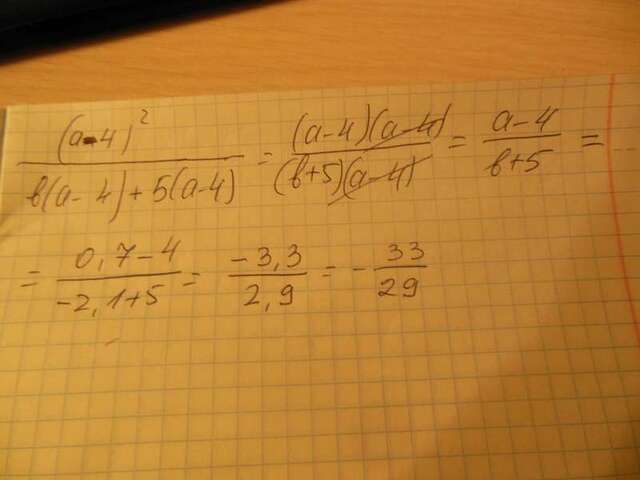 (a-4)² / (b(a-4)+5(a-4)) = (a-4)(a-4) / ((b+5)(a-4)) = (a-4) / (b+5) =
= (0,7-4) / (-2,1+5) = (-3,3) / (2,9) = - 33 / 29